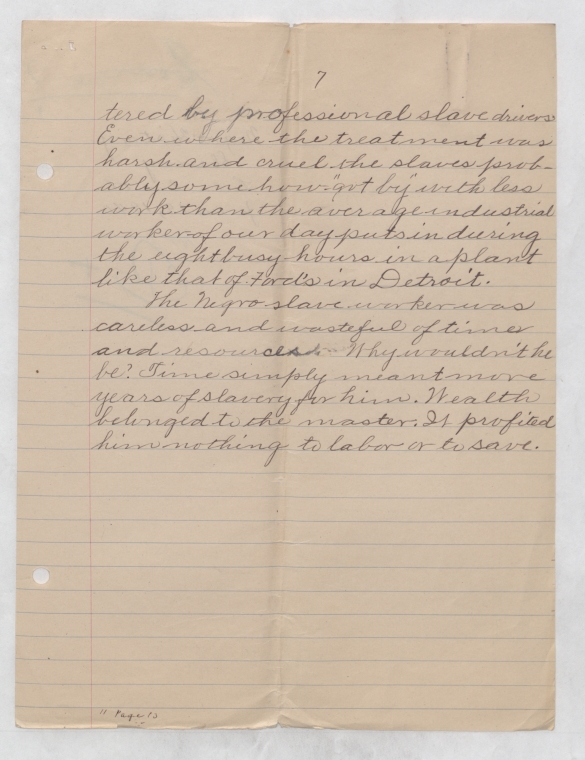 7
tered by professional slave drivers
Even where the treatment was
harsh and cruel the slaves prob-
ably some how "got by" with less
work than the average industrial
worker of our day puts in during
the eight busy hours in a plant
like that of Ford's in Detroit.
The Negro slave worker was
careless and wasteful of time
and resources. Why wouldn't he
be? Time simply meant more
years of slavery for him. Wealth
belonged to the master. It profited
him nothing to labor or to save.
Page